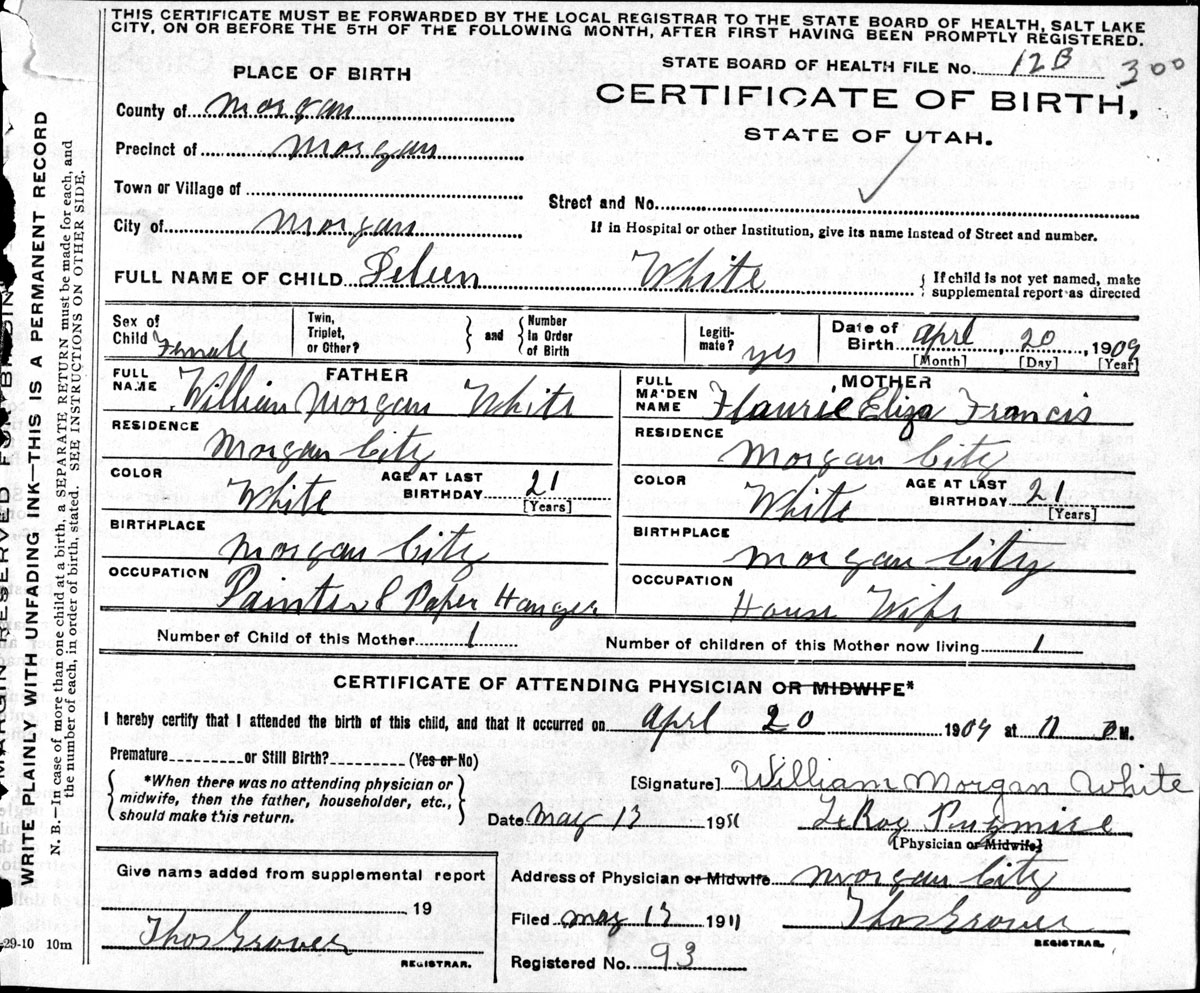 THIS CERTIFICATE MUST BE FORWARDED BY THE LOCAL REGISTRAR TO THE STATE BOARD OF HEALTH, SALT LAKE
CITY, ON OR BEFORE THE 5TH OF THE FOLLOWING MONTH, AFTER FIRST HAVING BEEN PROMPTLY REGISTERED.
STATE BOARD OF HEALTH FILE No. 12B 300
PLACE OF BIRTH
CERTIFICATE OF BIRTH,
STATE OF UTAH.
County of Morgan
Precinct of Morgan
Town or Village of
Street and No.
City of Morgan
If in Hospital or other Institution, give its name instead of Street and number.
FULL NAME OF CHILD White
If child is not yet named, make
supplemental report as directed
Sex of
Child Female
Twin,
Triplet,
or Other?
and
Number
in Order
of Birth
Legiti-
mate? yes
Date of
Birth April, 20, 1909
[Month] [Day] [Year]
FATHER
FULL
NAME William Morgan White
RESIDENCE
Morgan City
COLOR
White
AGE AT LAST
BIRTHDAY 21
[Years]
BIRTHPLACE
Morgan City
OCCUPATION
Painter & Paper Hanger
MOTHER
FULL
MAIDEN
NAME Flaurie Eliza Francis
RESIDENCE
Morgan City
COLOR
White
AGE AT LAST
BIRTHDAY 21
[Years]
BIRTHPLACE
Morgan City
OCCUPATION
House Wife
Number of Child of this Mother 1
Number of children of this Mother now living 1
CERTIFICATE OF ATTENDING PHYSICIAN OR MIDWIFE*
I hereby certify that I attended the birth of this child, and that it occurred on April 20 1909 at 11 P M.
Premature or Still Birth? (Yes or No)
*When there was no attending physician or
midwife, then the father, householder, etc.,
should make this return.
[Signature] William Morgan White
Date May 13 1911
LeRoy Pugmire
[Physician or Midwife]
Give name added from supplemental report
19
Thos Grover
REGISTRAR.
Address of Physician or Midwife Morgan City
Filed May 1911
Thos Grover
REGISTRAR.
Registered No. 93
29-10 10m
MARGIN RESERVED FOR BINDING
WRITE PLAINLY WITH UNFADING INK—THIS IS A PERMANENT RECORD
N. B.—In case of more than one child at a birth, a SEPARATE RETURN must be made for each, and
the number of each, in order of birth, stated. SEE INSTRUCTIONS ON OTHER SIDE.